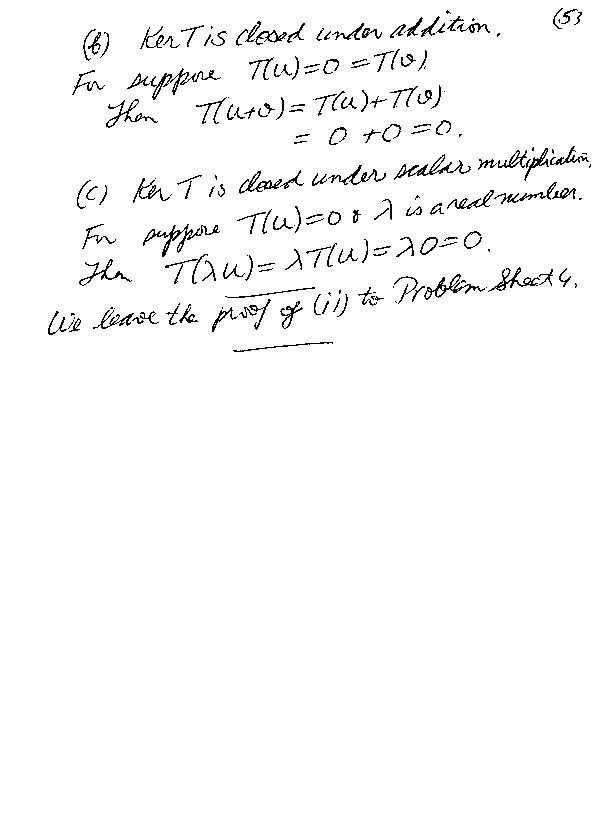 (53
(b) Ker T is closed under addition.
For suppose T(u)=0=T(v)
Then T(u+v)=T(u)+T(v)
= 0+0=0.
(c) Ker T is closed under scalar multiplication,
For suppose T(u)=0 & λ is a real number.
Then T(λu)=λT(u)=λ0=0.
We leave the proof of (ii) to Problem Sheet 4.